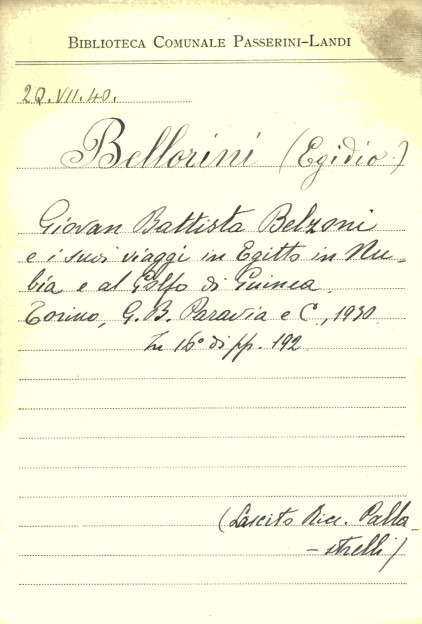 BIBLIOTECA COMUNALE PASSERINI-LANDI
2Q.VII.40.
Bellorini (Egidio.)
Giovan Battista Belzoni
e i suoi viaggi in Egitto in Nu-
bia e al Golfo di Guinea.
Torino, G. B. Paravia e C., 1930.
In 16° di pp. 192.
(Lascito Ricc. Palla-
-strelli)